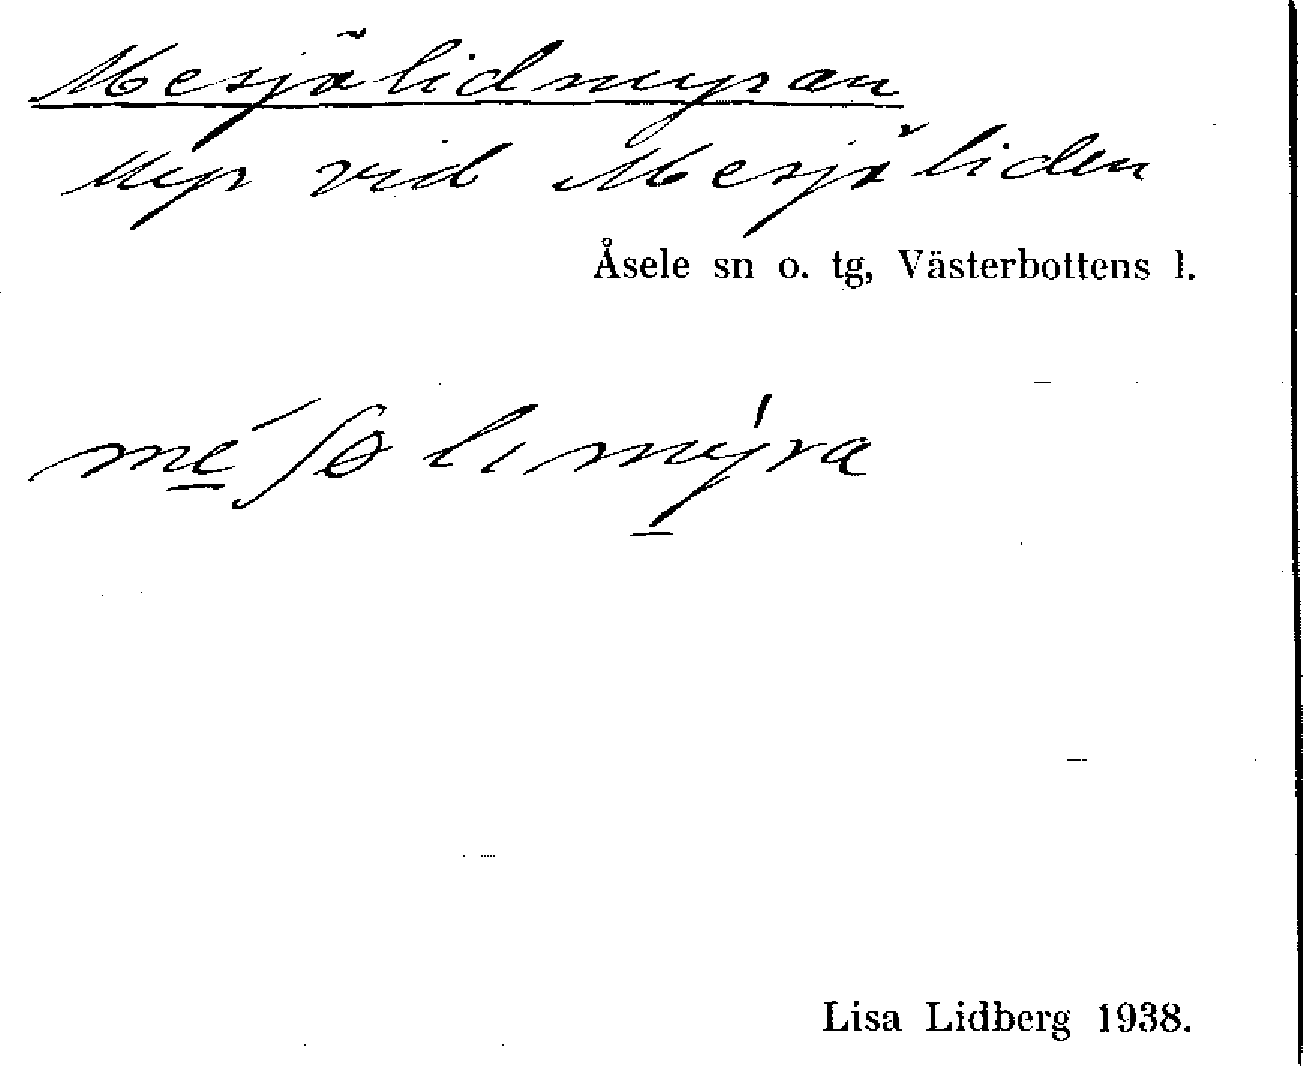 Mesjölidmyran
Myr vid Mesjöliden
Åsele sn o. tg, Västerbottens l.
mé̱ʃɵlimý̱ra
Lisa Lidberg 1938.